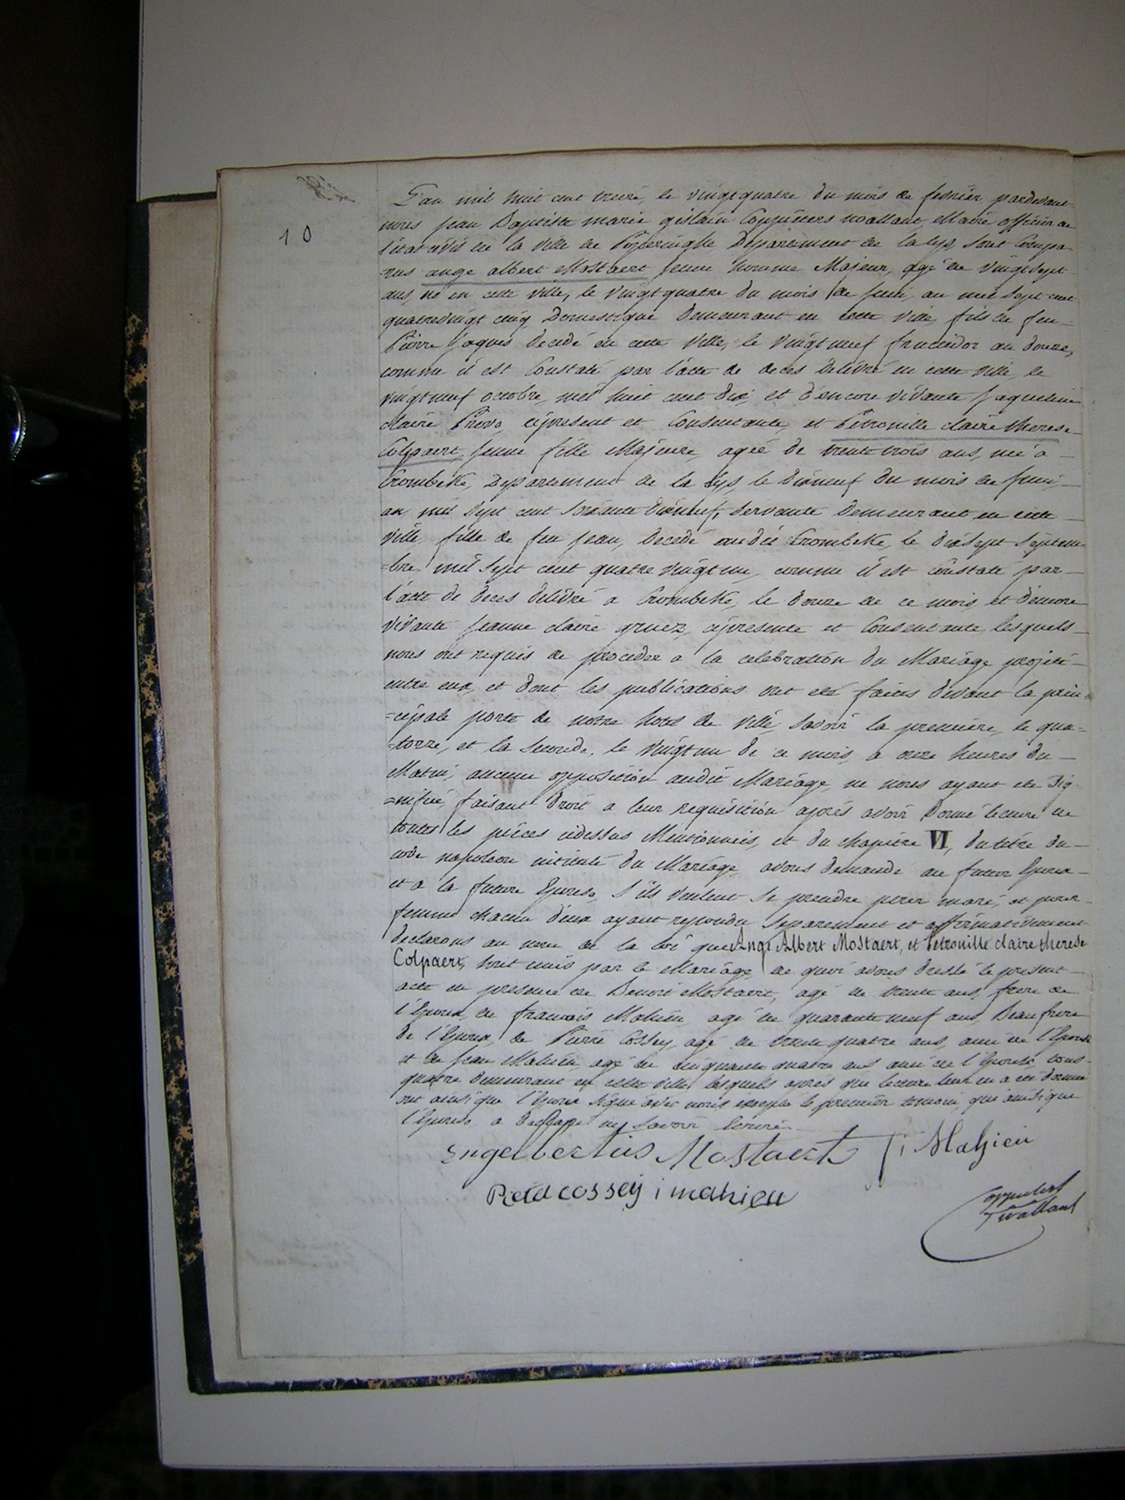 10
L'an mil huit cent treize, le vingtquatre du mois de fevrier pardevant
nous jean Baptiste marie gislain Coppieters wallant, Maire officier de
l'etat civil de la ville de Poperinghe Departement de la Lys, sont Compa-
rus ange albert Mostaert jeune homme Majeur, agé de vingt sept
ans, né en cette ville, le vingt quatre du mois de juin, an mil sept cent
quatrevingt cinq Domestique demeurant en cette ville, fils de feu
Pierre jaques decedé en cette ville, le vingtneuf fructidor an douze,
comme il est Constaté par l'acte de deces delivré en cette ville, le
vingtneuf octobre, mil huit cent dix, et d'encore vivante jaqueline
claire cipresent et Consentante, et Petronille claire therese
Colpaert, jeune fille Majeure agée de trente trois ans, née a
Crombeke, Departement de la Lys, le dixneuf du mois de juin,
an mil sept cent soixante dixneuf, servante demeurant en cette
ville, fille de feu jean, decedé audit Crombeke, le dixsept septem-
=bre mil sept cent quatre vingt un, comme il est constaté par
l'acte de deces delivré a Crombeke, le douze de ce mois et d'encore
vivante jeanne claire gruez, cipresente et Consentante, lesquels
nous ont requis de proceder a la celebration du Mariage projeté
entre eux, et dont les publications ont eté faites devant la prin
=cipale porte de notre hotel de ville, savoir la premiere, le qua-
-torze, et la seconde, le vingt un de ce mois, a onze heures du
Matin, aucune opposition audit Mariage ne nous ayant eté sig-
=nifiée, faisant droit a leur requisition, aprés avoir donné lecture de
toutes les pièces cidessus Mentionnées, et du chapitre VI, du titre du
code napoleon intitulé du Mariage, avons demandé au futur Epoux
et a la future Epouse, s'ils veulent se prendre pour mari, et pour
femme chacun d'eux ayant repondu separement et affirmativement
declarons au nom de la loi que Ange Albert Mostaert, et Petronille claire therese
Colpaert, sont unis par le Mariage, de quoi avons dressé le present
acte en presence de Benoit Mostaert, agé de trente ans, frere de
l'Epoux, de francois Mahieu agé de quarante neuf ans, Beaufrere
de l'Epoux, de Pierre Cossey, agé de trente quatre ans, ami de l'Epouse
et de jean Mahieu, agé de cinquante quatre ans ami de l'Epouse, tous
quatre demeurant en cette ville, lesquels apres que lecture leur en a eté donnée
ont ainsi que l'Epoux signé avec nous excepté le premier temoin, qui ainsi que
l'Epouse, a declaré ne savoir ecrire.
Engelbertus Mostaert f: Mahieu
Pieter cossey i mahieu
Coppieters
Twallant